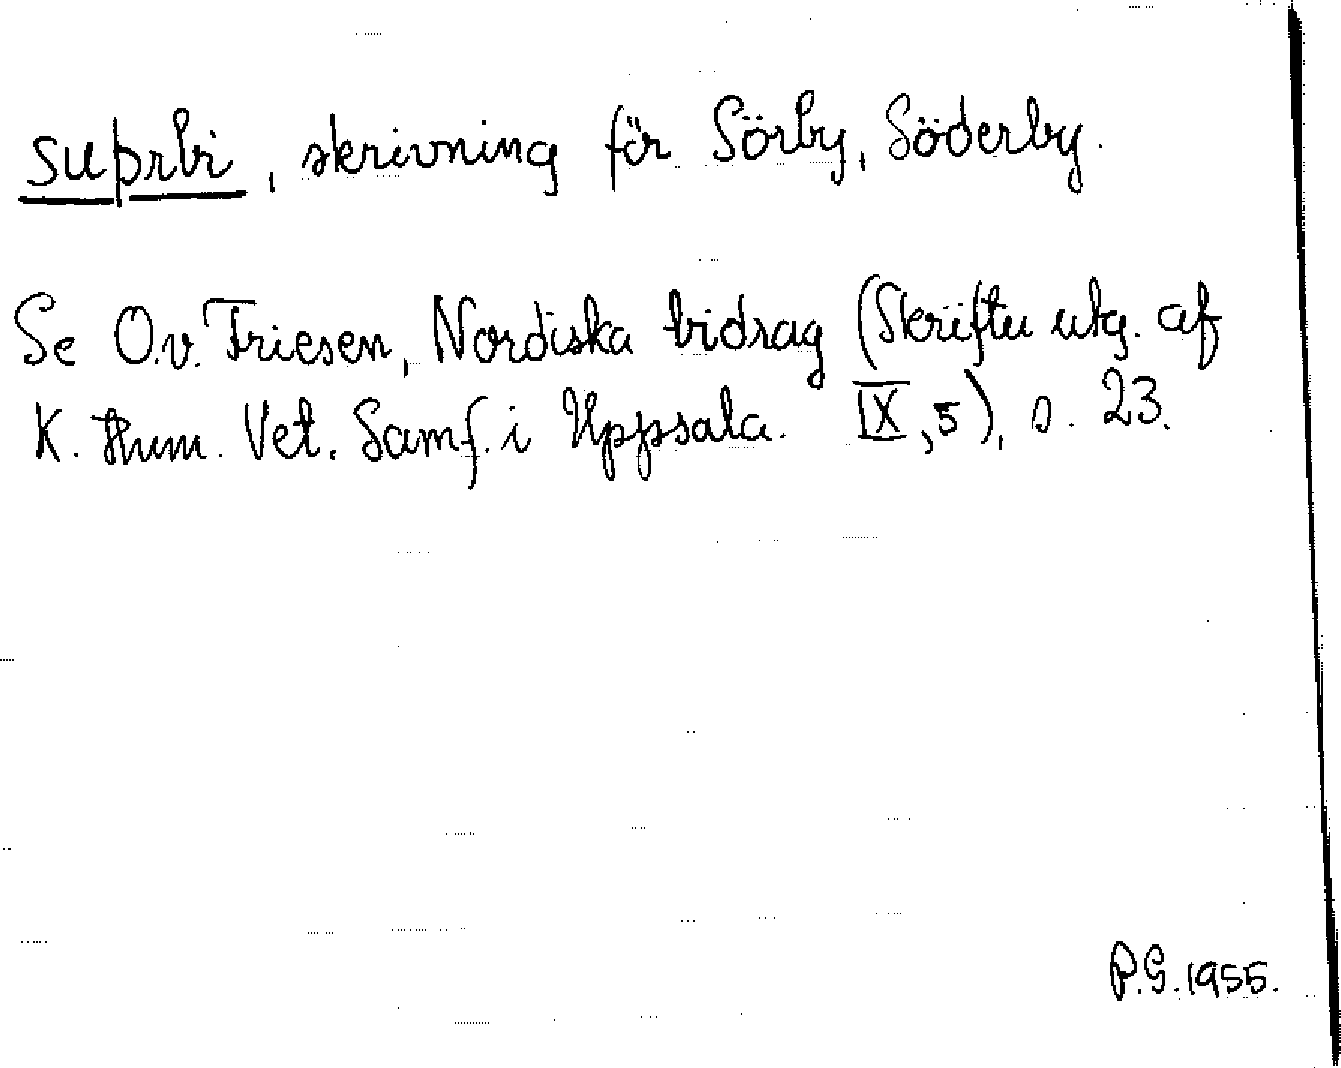 suþrbi, skrivning för Sörby, Söderby.
Se O.v. Friesen, Nordiska bidrag (Skrifter utg. af
K. Hum. Vet. Samf. i Uppsala. IX,5), s. 23.
P.G. 1955.